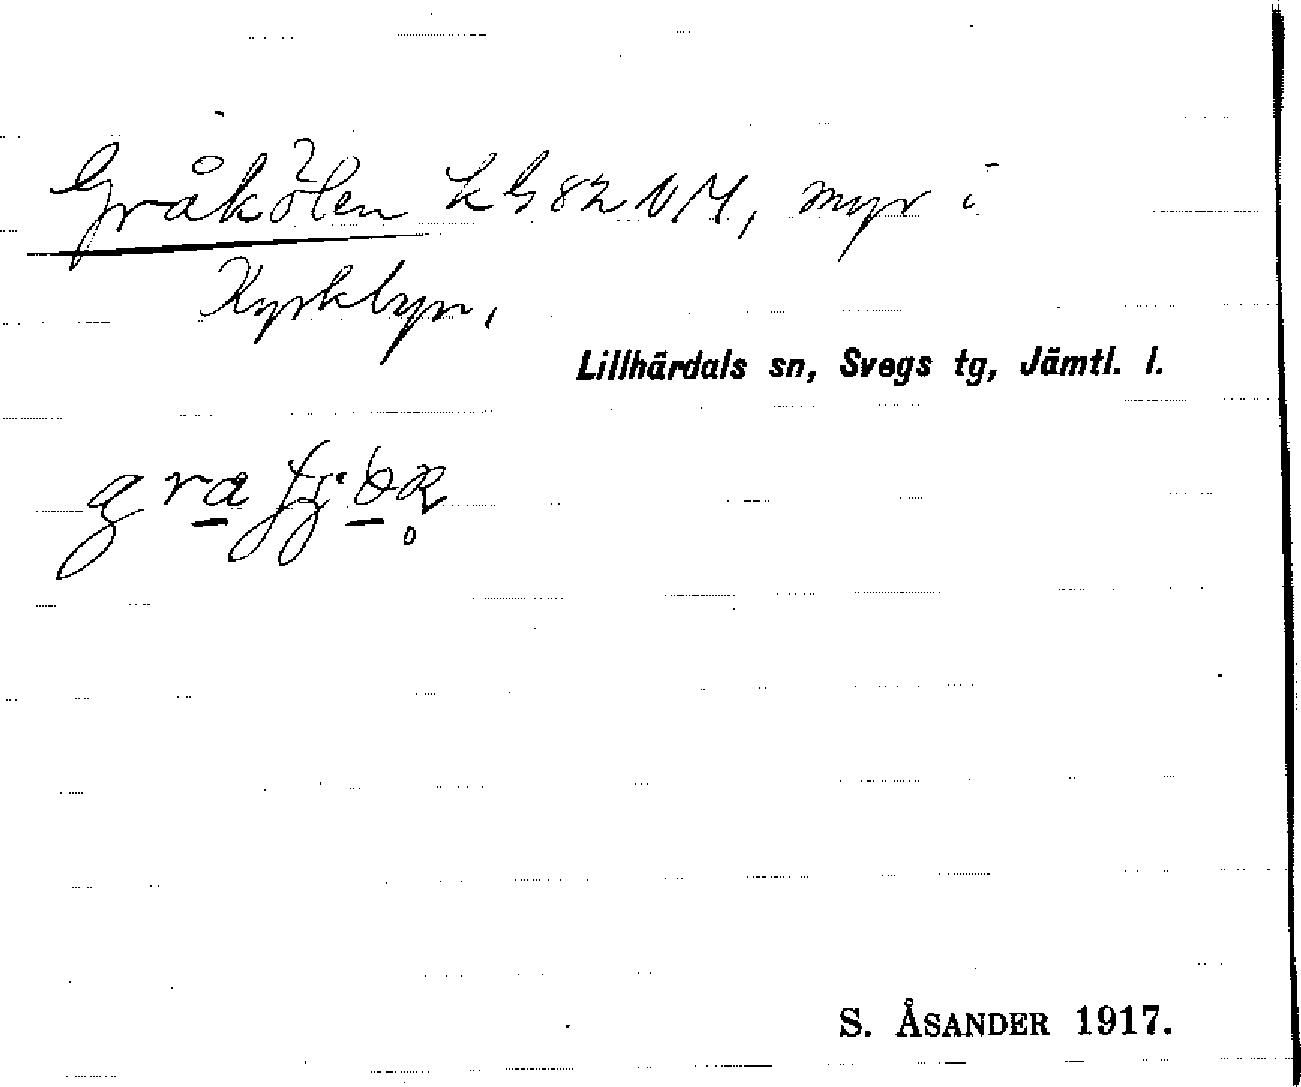 Gråkölen LG 82 NM, myr i
Kyrkbyn,
Lillhärdals sn, Svegs tg, Jämtl. l.
S. ÅSANDER 1917.